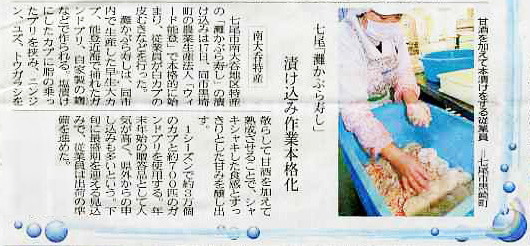 甘酒を加えて本漬けをする従業員
七尾市黒崎町
七尾「灘かぶら寿し」
漬け込み作業本格化
南大呑特産
七尾市南大呑地区特産
の「灘かぶら寿し」の漬
け込みは17日、同市黒崎
町の農業生産法人「ウィ
ード能登」で本格的に始
まり、従業員が白カブの
皮むきなどを行った。
灘かぶら寿しは、同市
内で生産した早生大カ
ブ、能登近海で捕れたガ
ンドブリ、自家製の麹
などで作られる。塩漬け
にしたカブに脂の乗っ
たブリを挟み、ニンジ
ン、ユズ、トウガラシを
散らして甘酒を加えて
熟成させることで、シャ
キシャキした食感とすっ
きりとした甘みを醸し出
す。
1シーズンで約3万個
のカブと約700匹のガ
ンドブリを使用する。年
末年始の贈答品として人
気が高く、県外からの申
し込みも多いという。下
旬に最盛期を迎える見込
みで、従業員は出荷の準
備を進めた。